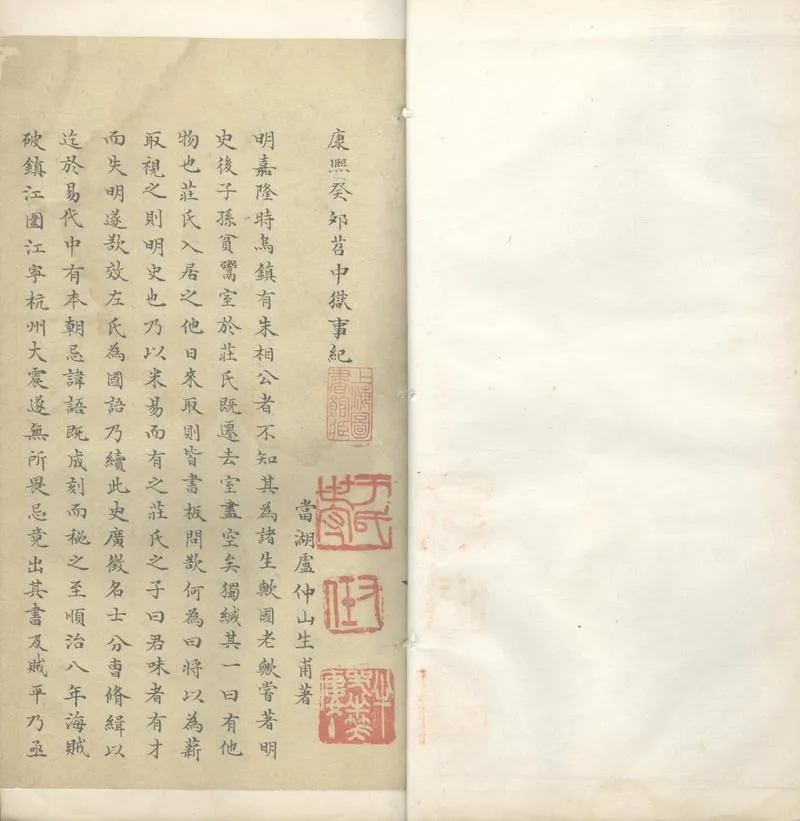 康熙癸夘苕中獄事紀
上海圖書館臧
當湖盧仲山生甫著
明嘉隆時烏鎮有朱相公者不知其為諸生歟國老歟嘗著明
史後子孫貧鬻室於莊氏既遷去室盡空矣獨緘其一曰有他
物也莊氏入居之他日來取則皆書板問欲何為曰將以為薪
取視之則明史也乃以米易而有之莊氏之子曰君味者有才
而失明遂欲效左氏為國語乃續此史廣徵名士分曹脩緝以
迄於易代中有本朝忌諱語既成刻而秘之至順治八年海賊
破鎮江圍江寧杭州大震遂無所畏忌竟出其書及賊平乃亟